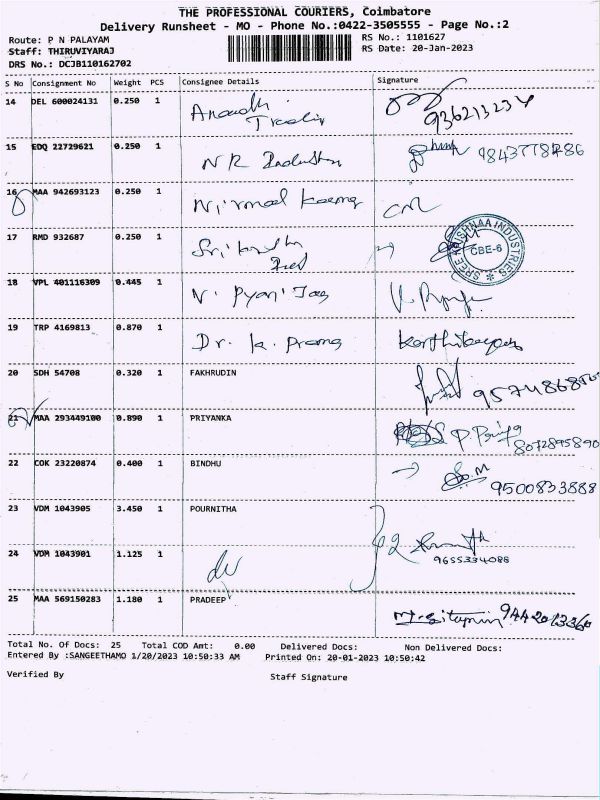 THE PROFESSIONAL COURIERS, Coimbatore
Delivery Runsheet - MO - Phone No.:0422-3505555 - Page No.:2
Route: P N PALAYAM
RS No.: 1101627
Staff: THIRUVIYARAJ
RS Date: 20-Jan-2023
DRS No.: DCJB110162702
S No Consignment No Weight PCS Consignee Details Signature
14 DEL 600024131 0.250 1
936213234
15 EDQ 22729621 0.250 1 NR
16 MAA 942693123 0.250 1 Nirmal
17 RMD 932687 0.250 1 Sri
SREE KRISHNAA INDUSTRIES
CBE-6
18 VPL 401116309 0.445 1 V.
19 TRP 4169813 0.870 1 Dr. K. Karthikeyan
20 SDH 54708 0.320 1 FAKHRUDIN
21 MAA 293449100 0.890 1 PRIYANKA P.
8072895890
22 COK 23220874 0.400 1 BINDHU
9500833888
23 VDM 1043905 3.450 1 POURNITHA
9655334088
24 VDM 1043901 1.125 1
25 MAA 569150283 1.180 1 PRADEEP
Total No. Of Docs: 25 Total COD Amt: 0.00 Delivered Docs: Non Delivered Docs:
Entered By :SANGEETHAMO 1/20/2023 10:50:33 AM Printed On: 20-01-2023 10:50:42
Verified By Staff Signature